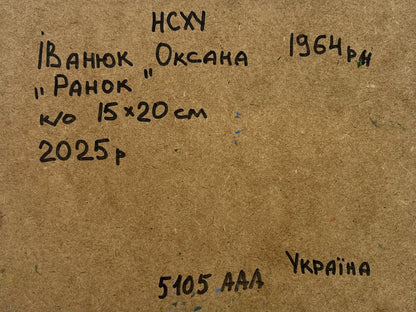 НСХУ
Іванюк Оксана 1964 рн
„Ранок"
к/о 15×20 см
2025 р
Україна
5105 ААА